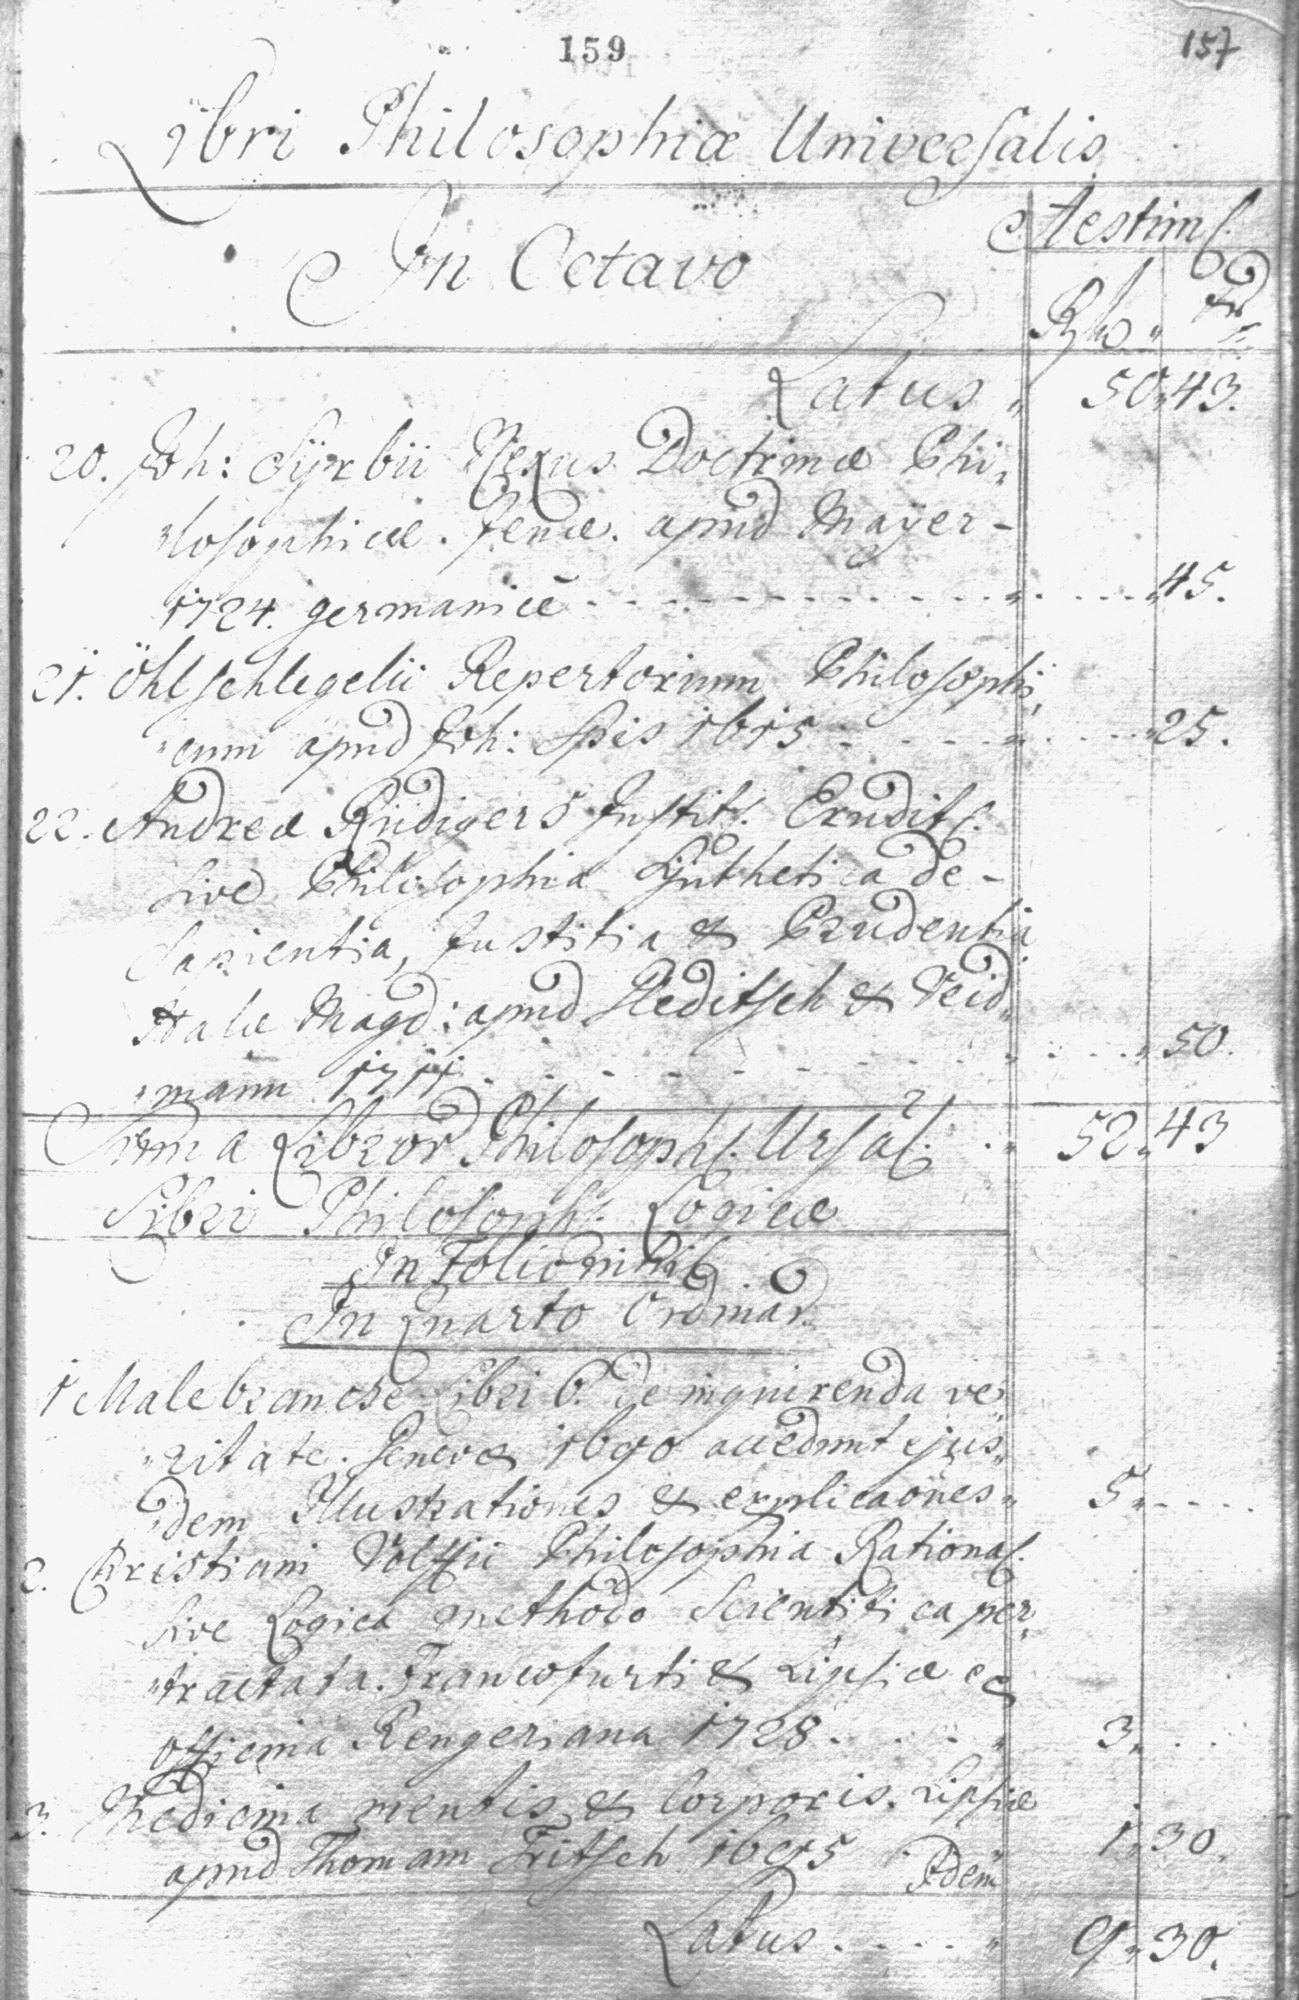 159
157
Libri Philosophiæ Universalis
In Octavo
Aestim.
Latus „ 50 „ 43.
20. Joh: Syrbii Nexus Doctrinæ Phi„
„losophicæ. Jenæ. apud Mayer-
1724. germanicè „ „ 45.
21. Öhlschlegelii Repertorium Philosophi„
„cum apud Joh: Spis 1615 „ „ 25.
22. Andreæ Rüdigers Instit. Erudit.
sive Philosophia Synthetica de-
Sapientia, Justitia & Prudentia
Halæ Magd: apud Heditsch & Veid„
„mann 1711 „ „ 50.
Suma Libror Philosoph. Ursal. „ 52 „ 43
Libri Philosoph. Logicæ
In Folio nihil
In Quarto Ordinar.
1 Malebranche Libri 6. de inquirenda ve
„ritate. Genevæ 1690 accedunt ejus„
„dem Illustrationes & explicaones „ 5 „
2. Christiani Volffii Philosophia Rational.
sive Logica methodo Scientifica per„
„tractata. Francofurti & Lipsiæ
officina Rengeriana 1728 „ 3 „
3. Medicina mentis & Corporis. Lipsiæ
apud Thomam Fritsch 1695 „ 1 „ 30.
Idem
Latus „ 9 „ 30.